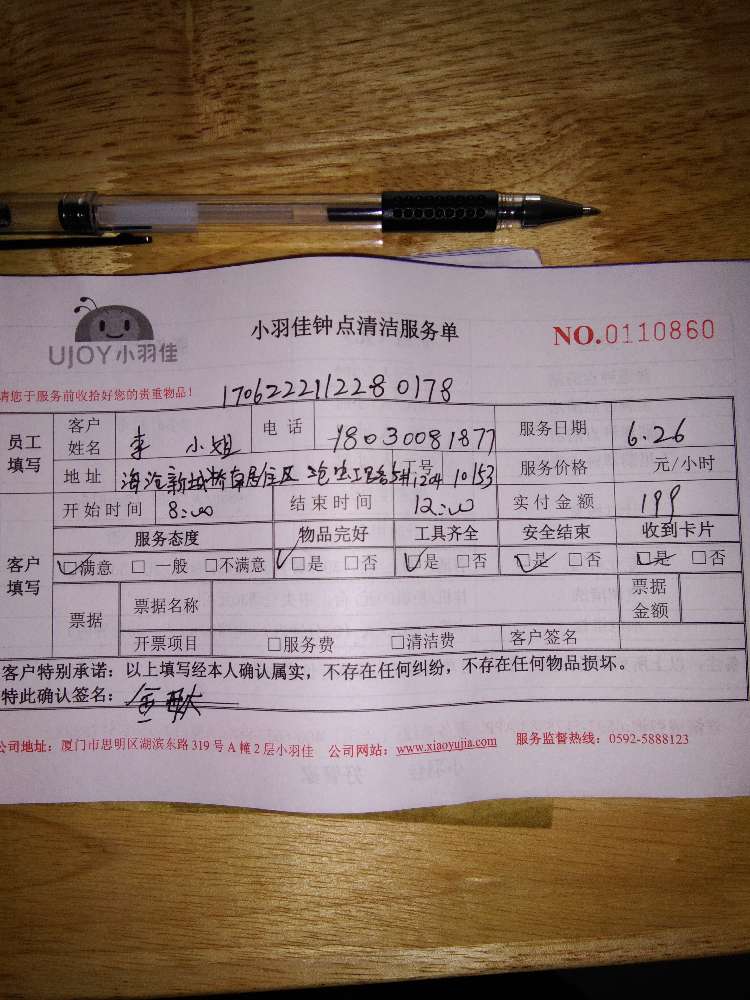 UJOY小羽佳
小羽佳钟点清洁服务单
NO.0110860
请您于服务前收拾好您的贵重物品!
170622211228 0178
员工填写 客户姓名 李 小姐 电话 18030081877 服务日期 6.26
地址 海沧新城桥自居住区 号 10153 服务价格 元/小时
客户填写 开始时间 8:00 结束时间 12:00 实付金额 199
服务态度 物品完好 工具齐全 安全结束 收到卡片
☑满意 □ 一般 □不满意 ☑是 □否 ☑是 □否 ☑是 □否 ☑是 □否
票据 票据名称 票据金额
开票项目 □服务费 □清洁费 客户签名
客户特别承诺:以上填写经本人确认属实,不存在任何纠纷,不存在任何物品损坏。
特此确认签名:
公司地址:厦门市思明区湖滨东路319号A幢2层小羽佳 公司网站:www.xiaoyujia.com 服务监督热线:0592-5888123